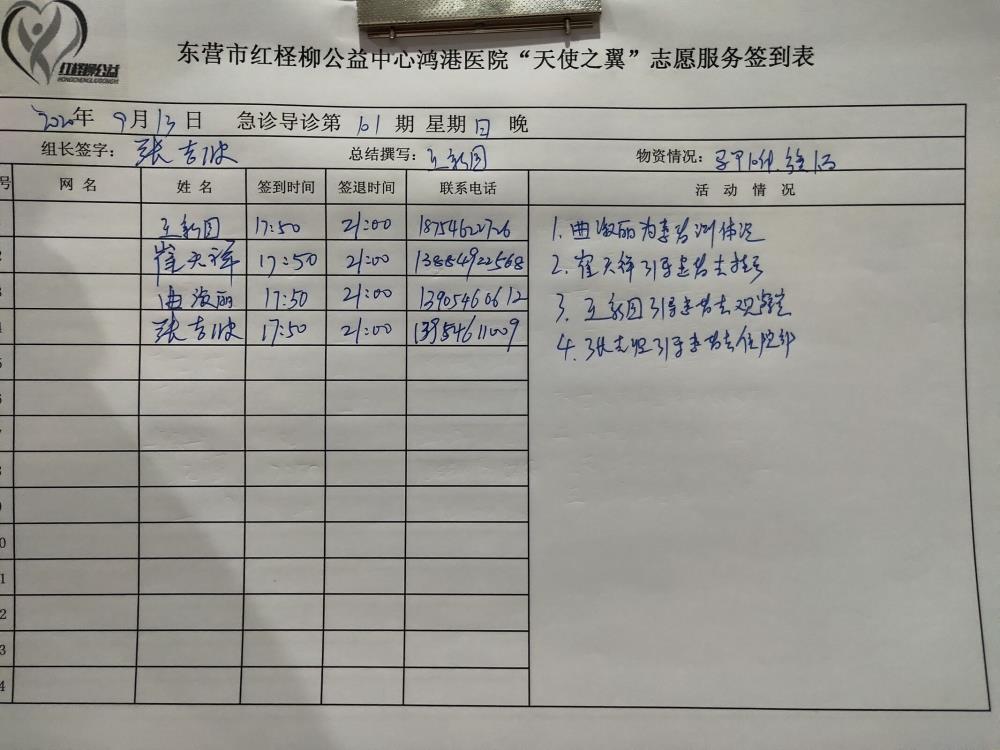 红柽柳公益
HONGCHENGLIUGONGYI
东营市红柽柳公益中心鸿港医院“天使之翼”志愿服务签到表
2020年 9月13日 急诊导诊第 101 期 星期日 晚
组长签字： 张吉波 总结撰写： 王新国 物资情况：
号 网名 姓名 签到时间 签退时间 联系电话 活动情况
王新国 17:50 21:00 18754622726
2 崔天祥 17:50 21:00 13884922568
3 曲淑丽 17:50 21:00 13905460612
4 张吉波 17:50 21:00 13954611009
1. 曲淑丽为患者测体温
2. 崔天祥引导患者去挂号
3. 王新国引导患者去观察室
4. 张吉波引导患者去住院部
5
6
7
8
9
0
1
2
3
4